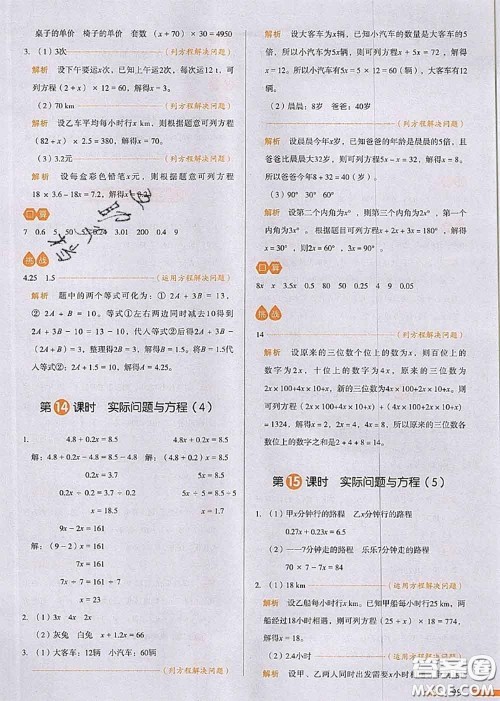 桌子的单价 椅子的单价 套数 (x+70)×30=4950
3. (1) 3次 (列方程解决问题)
解析 设下午要运x次,已知上午运2次,每次运12 t,可
列方程(2+x)×12=60,解得x=3。
(2) 70 km (列方程解决问题)
解析 设乙车平均每小时行x km,则根据题意可列方程
(82+x)×2.5=380,解得x=70。
(3) 3.2元 (列方程解决问题)
解析 设每盒彩色铅笔x元,则根据题意可列方程
18×3.6-18x=7.2,解得x=
口算
7 0.6 5 50 0.24 3.01 200 0.4 9
挑战
4.25 1.5 (运用方程解决问题)
解析 题中的两个等式可化为:① 2A+3B=13,
② 2A+B=10。等式①左右两边同时减去10得:
2A+3B-10=13-10=3,代入等式②得:2A+3B-
(2A+B)=3,整理得2B=3,解得B=1.5。代入
等式②:2A+1.5=10,解得A=4.25。
第14课时 实际问题与方程(4)
1. 4.8+0.2x=8.5 (4.8+0.2)x=8.5
解:4.8+0.2x=8.5 解:(4.8+0.2)x=8.5
0.2x=3.7 5x=8.5
0.2x÷0.2=3.7÷0.2 5x÷5=8.5÷5
x=18.5 x=1.7
9x-2x=161
解:(9-2)x=161
7x=161
7x÷7=161÷7
x=23
2. (1) 3x 4x 2x
(2) 灰兔 白兔 x+1.2x=66
3. (1) 大客车:12辆 小汽车:60辆
(列方程解决问题)
解析 设大客车为x辆,已知小汽车的数量是大客车的5
倍,所以小汽车为5x辆,则可列方程x+5x=72,解得
x=12,所以小汽车有5×12=60(辆)。
(2) 晨晨:8岁 爸爸:40岁
(列方程解决问题)
解析 设晨晨今年x岁,已知爸爸的年龄是晨晨的5倍,且
爸爸比晨晨大32岁,则可列方程5x-x=32,解得x=8,
所以爸爸今年8+32=40(岁)。
(3) 90° (列方程解决问题)
解析 设第一个内角为x°,则第二个内角为2x°,第一个
内角为3x°。根据题目可列方程x+2x+3x=180,解得
x=30°,则2x=60°,3x=90°。
口算
8x x 3.5x 0.5 80 25 9 0.2 4 100
挑战
14 (列方程解决问题)
解析 设原来的三位数个位上的数为x,则百位上的
数字为2x,十位上的数字为2x,则原来的三位数为
2x×100+4x×10+x,新的三位数为4x×100+2x×10+x。则
可列方程(4x×100+2x×10+x)+(2x×100+4x×10+x)
=1324,解得x=2,代入得原来的三位数是248,所以各
数位上的数字之和是2+4+8=14。
第15课时 实际问题与方程(5)
1. (1) 甲x分钟行的路程 乙x分钟行的路程
0.27x+0.3x=8.5
(2) ——7分钟走的路程 乐乐7分钟走的路程
70×7-7x=84
2. (1) 18 km (运用方程解决问题)
解析 设乙船每小时行x km。已知甲船每小时行25 km,两
船经过18小时相遇,则可列方程(25+x)×18=774,解
得x=18。
(2) 2.4小时 (运用方程解决问题)
解析 设甲、乙两人同时出发需要x小时
答案圈
MXQE.COM